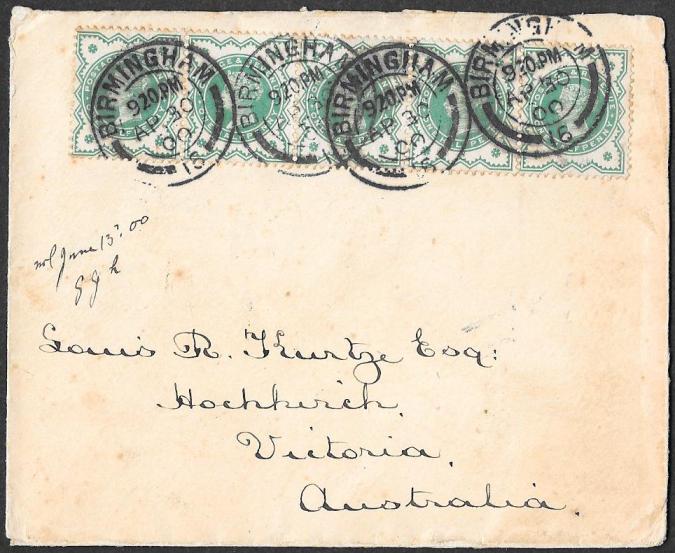 BIRMINGHAM
9 20 PM
AP 30
00
16
BIRMINGHAM
9 20 PM
BIRMINGHAM
9 20 PM
AP 30
00
BIRMINGHAM
9 20 PM
AP 30
00
16
June 13th 00
Louis R. Kurtze Esq:
Hochkirch,
Victoria,
Australia.